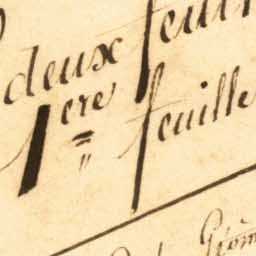 deux feuil
1ere feuille
Géom